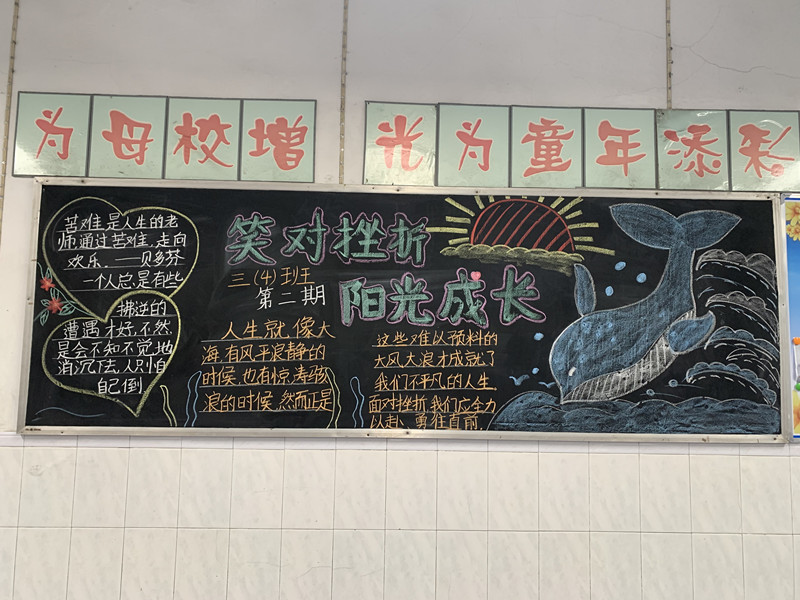 为母校增光为童年添彩
笑对挫折
阳光成长
三(4)班
第二期
苦难是人生的老
师,通过苦难,走向
欢乐.——贝多芬
一个人总是有些
拂逆的
遭遇才好,不然
是会不知不觉地
消沉下去,人只怕
自己倒
人生就像大
海,有风平浪静的
时候,也有惊涛骇
浪的时候,然而正是
这些难以预料的
大风大浪才成就了
我们不平凡的人生.
面对挫折,我们应全力
以赴、勇往直前.